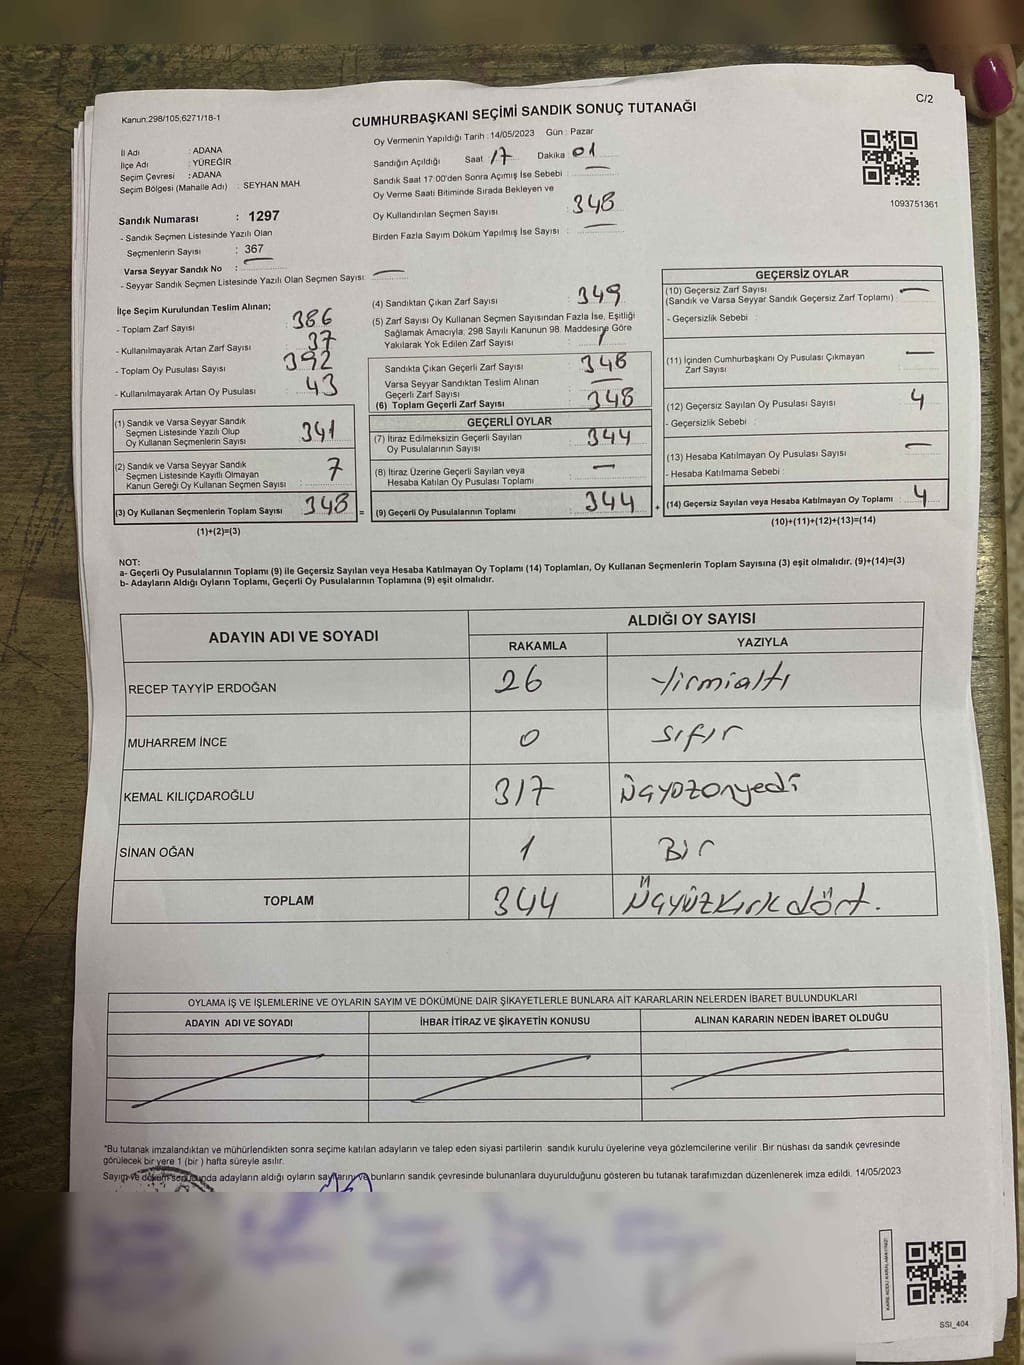 Kanun:298/105;6271/18-1
C/2
CUMHURBAŞKANI SEÇİMİ SANDIK SONUÇ TUTANAĞI
Oy Vermenin Yapıldığı Tarih : 14/05/2023 Gün : Pazar
İl Adı : ADANA
İlçe Adı : YÜREĞİR
Seçim Çevresi : ADANA
Seçim Bölgesi (Mahalle Adı) : SEYHAN MAH
Sandığın Açıldığı Saat 17 Dakika 01
Sandık Saat 17:00'den Sonra Açımış İse Sebebi :
Oy Verme Saati Bitiminde Sırada Bekleyen ve
Oy Kullandırılan Seçmen Sayısı 348
Birden Fazla Sayım Döküm Yapılmış İse Sayısı :
1093751361
Sandık Numarası : 1297
- Sandık Seçmen Listesinde Yazılı Olan
Seçmenlerin Sayısı : 367
Varsa Seyyar Sandık No :
- Seyyar Sandık Seçmen Listesinde Yazılı Olan Seçmen Sayısı:
İlçe Seçim Kurulundan Teslim Alınan;
- Toplam Zarf Sayısı 386
- Kullanılmayarak Artan Zarf Sayısı : 37
- Toplam Oy Pusulası Sayısı 392
- Kullanılmayarak Artan Oy Pusulası 43
(1) Sandık ve Varsa Seyyar Sandık
Seçmen Listesinde Yazılı Olup
Oy Kullanan Seçmenlerin Sayısı 341
(2) Sandık ve Varsa Seyyar Sandık
Seçmen Listesinde Kayıtlı Olmayan
Kanun Gereği Oy Kullanan Seçmen Sayısı : 7
(3) Oy Kullanan Seçmenlerin Toplam Sayısı 348 =
(1)+(2)=(3)
(4) Sandıktan Çıkan Zarf Sayısı : 349
(5) Zarf Sayısı Oy Kullanan Seçmen Sayısından Fazla İse, Eşitliği
Sağlamak Amacıyla; 298 Sayılı Kanunun 98. Maddesine Göre
Yakılarak Yok Edilen Zarf Sayısı : 1
Sandıkta Çıkan Geçerli Zarf Sayısı : 348
Varsa Seyyar Sandıktan Teslim Alınan
Geçerli Zarf Sayısı :
(6) Toplam Geçerli Zarf Sayısı : 348
GEÇERLİ OYLAR
(7) İtiraz Edilmeksizin Geçerli Sayılan
Oy Pusulalarının Sayısı : 344
(8) İtiraz Üzerine Geçerli Sayılan veya
Hesaba Katılan Oy Pusulası Toplamı :
(9) Geçerli Oy Pusulalarının Toplamı : 344 +
GEÇERSİZ OYLAR
(10) Geçersiz Zarf Sayısı
(Sandık ve Varsa Seyyar Sandık Geçersiz Zarf Toplamı) :
- Geçersizlik Sebebi :
(11) İçinden Cumhurbaşkanı Oy Pusulası Çıkmayan
Zarf Sayısı :
(12) Geçersiz Sayılan Oy Pusulası Sayısı : 4
- Geçersizlik Sebebi :
(13) Hesaba Katılmayan Oy Pusulası Sayısı :
- Hesaba Katılmama Sebebi :
(14) Geçersiz Sayılan veya Hesaba Katılmayan Oy Toplamı : 4
(10)+(11)+(12)+(13)=(14)
NOT:
a- Geçerli Oy Pusulalarının Toplamı (9) ile Geçersiz Sayılan veya Hesaba Katılmayan Oy Toplamı (14) Toplamları, Oy Kullanan Seçmenlerin Toplam Sayısına (3) eşit olmalıdır. (9)+(14)=(3)
b- Adayların Aldığı Oyların Toplamı, Geçerli Oy Pusulalarının Toplamına (9) eşit olmalıdır.
ADAYIN ADI VE SOYADI
ALDIĞI OY SAYISI
RAKAMLA YAZIYLA
RECEP TAYYİP ERDOĞAN 26 Yirmialtı
MUHARREM İNCE 0 Sıfır
KEMAL KILIÇDAROĞLU 317 Üçyüzonyedi
SİNAN OĞAN 1 Bir
TOPLAM 344 Üçyüzkırkdört.
OYLAMA İŞ VE İŞLEMLERİNE VE OYLARIN SAYIM VE DÖKÜMÜNE DAİR ŞİKAYETLERLE BUNLARA AİT KARARLARIN NELERDEN İBARET BULUNDUKLARI
ADAYIN ADI VE SOYADI İHBAR İTİRAZ VE ŞİKAYETİN KONUSU ALINAN KARARIN NEDEN İBARET OLDUĞU
*Bu tutanak imzalandıktan ve mühürlendikten sonra seçime katılan adayların ve talep eden siyasi partilerin sandık kurulu üyelerine veya gözlemcilerine verilir. Bir nüshası da sandık çevresinde
görülecek bir yere 1 (bir ) hafta süreyle asılır.
Sayım ve döküm sonucunda adayların aldığı oyların sayılarını ve bunların sandık çevresinde bulunanlara duyurulduğunu gösteren bu tutanak tarafımızdan düzenlenerek imza edildi. 14/05/2023
SSI_404